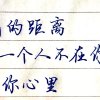 的距离
一个人不在你
你心里